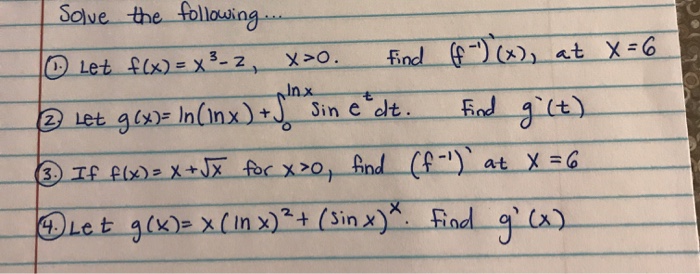 Solve the following...
① Let f(x) = x³-2, x>0. Find (f⁻¹)'(x), at x=6
② Let g(x)= ln(lnx) + ∫₀^lnx sin e^t dt. Find g'(t)
③ If f(x) = x+√x for x>0, find (f⁻¹)' at x=6
④ Let g(x)= x(ln x)² + (sin x)^x. Find g'(x)